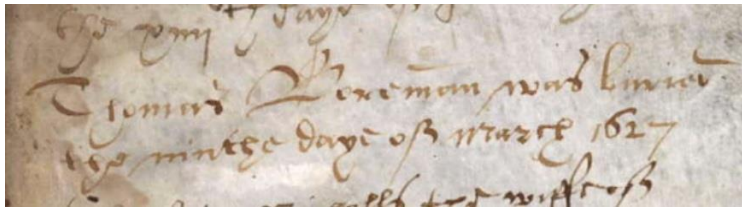 the xiiij th daye of
Thomas Boreman was buried
the ninthe daye of March 1627
the wiffe of